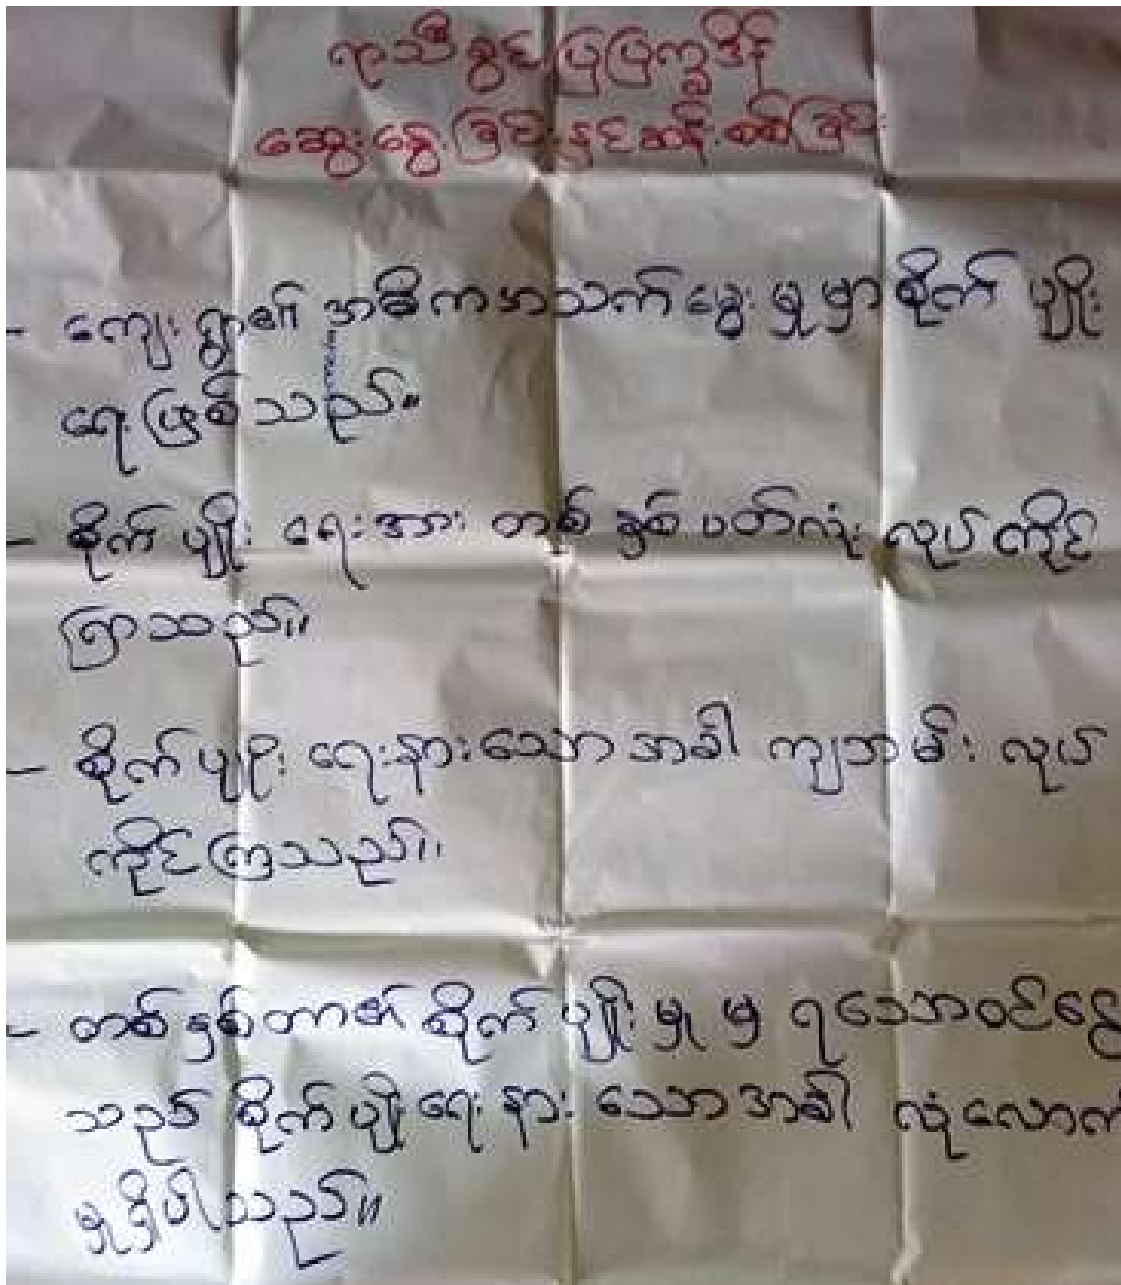 ရာသီခွင်ပြပြက္ခဒိန်
ဆွေးနွေးခြင်းနှင့်ဆန်းစစ်ခြင်း
- ကျေးရွာ၏ အဓိကအသက်မွေးမှုမှာစိုက်ပျိုး
ရေးဖြစ်သည်။
- စိုက်ပျိုးရေးအား တစ်နှစ်ပတ်လုံး လုပ်ကိုင်
ကြသည်။
- စိုက်ပျိုးရေးနားသောအခါ ကျဘမ်း လုပ်
ကိုင်ကြသည်။
- တစ်နှစ်တာ၏စိုက်ပျိုးမှုမှ ရသောအဝင်ငွေ
သည် စိုက်ပျိုးရေးနားသောအခါ လုံလောက်
မှုရှိပါသည်။